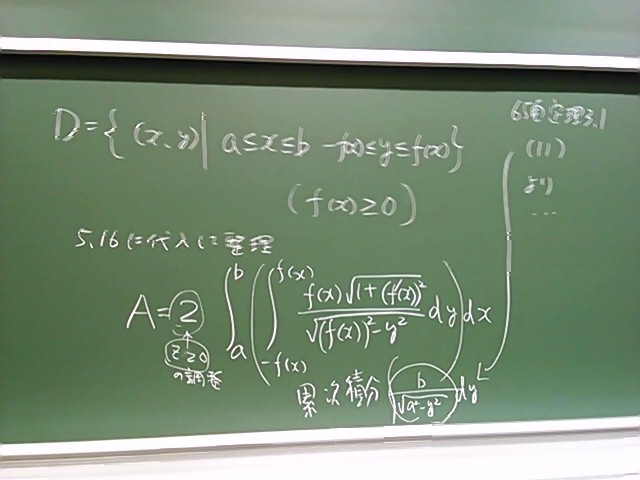 D={(x,y)| a≤x≤b -f(x)≤y≤f(x)}
(f(x)≥0)
5.16に代入して整理
A=2∫_a^b(∫_{-f(x)}^{f(x)} \frac{f(x)\sqrt{1+(f'(x))^2}}{\sqrt{(f(x))^2-y^2}} dy)dx
z≥0
の調整
累次積分 (\frac{b}{\sqrt{a^2-y^2}})dy
65頁定理3.1
(11)
より
...